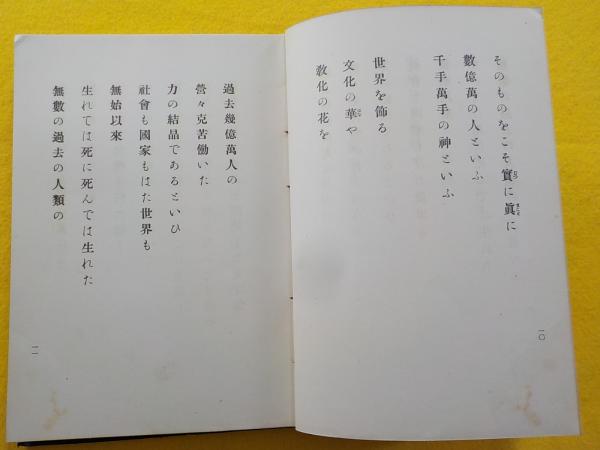 そのものをこそ實に眞に
數億萬の人といふ
千手萬手の神といふ
世界を飾る
文化の華や
敎化の花を
一〇
過去幾億萬人の
營々克苦働いた
力の結晶であるといひ
社會も國家もはた世界も
無始以來
生れては死に死んでは生れた
無數の過去の人類の
一一